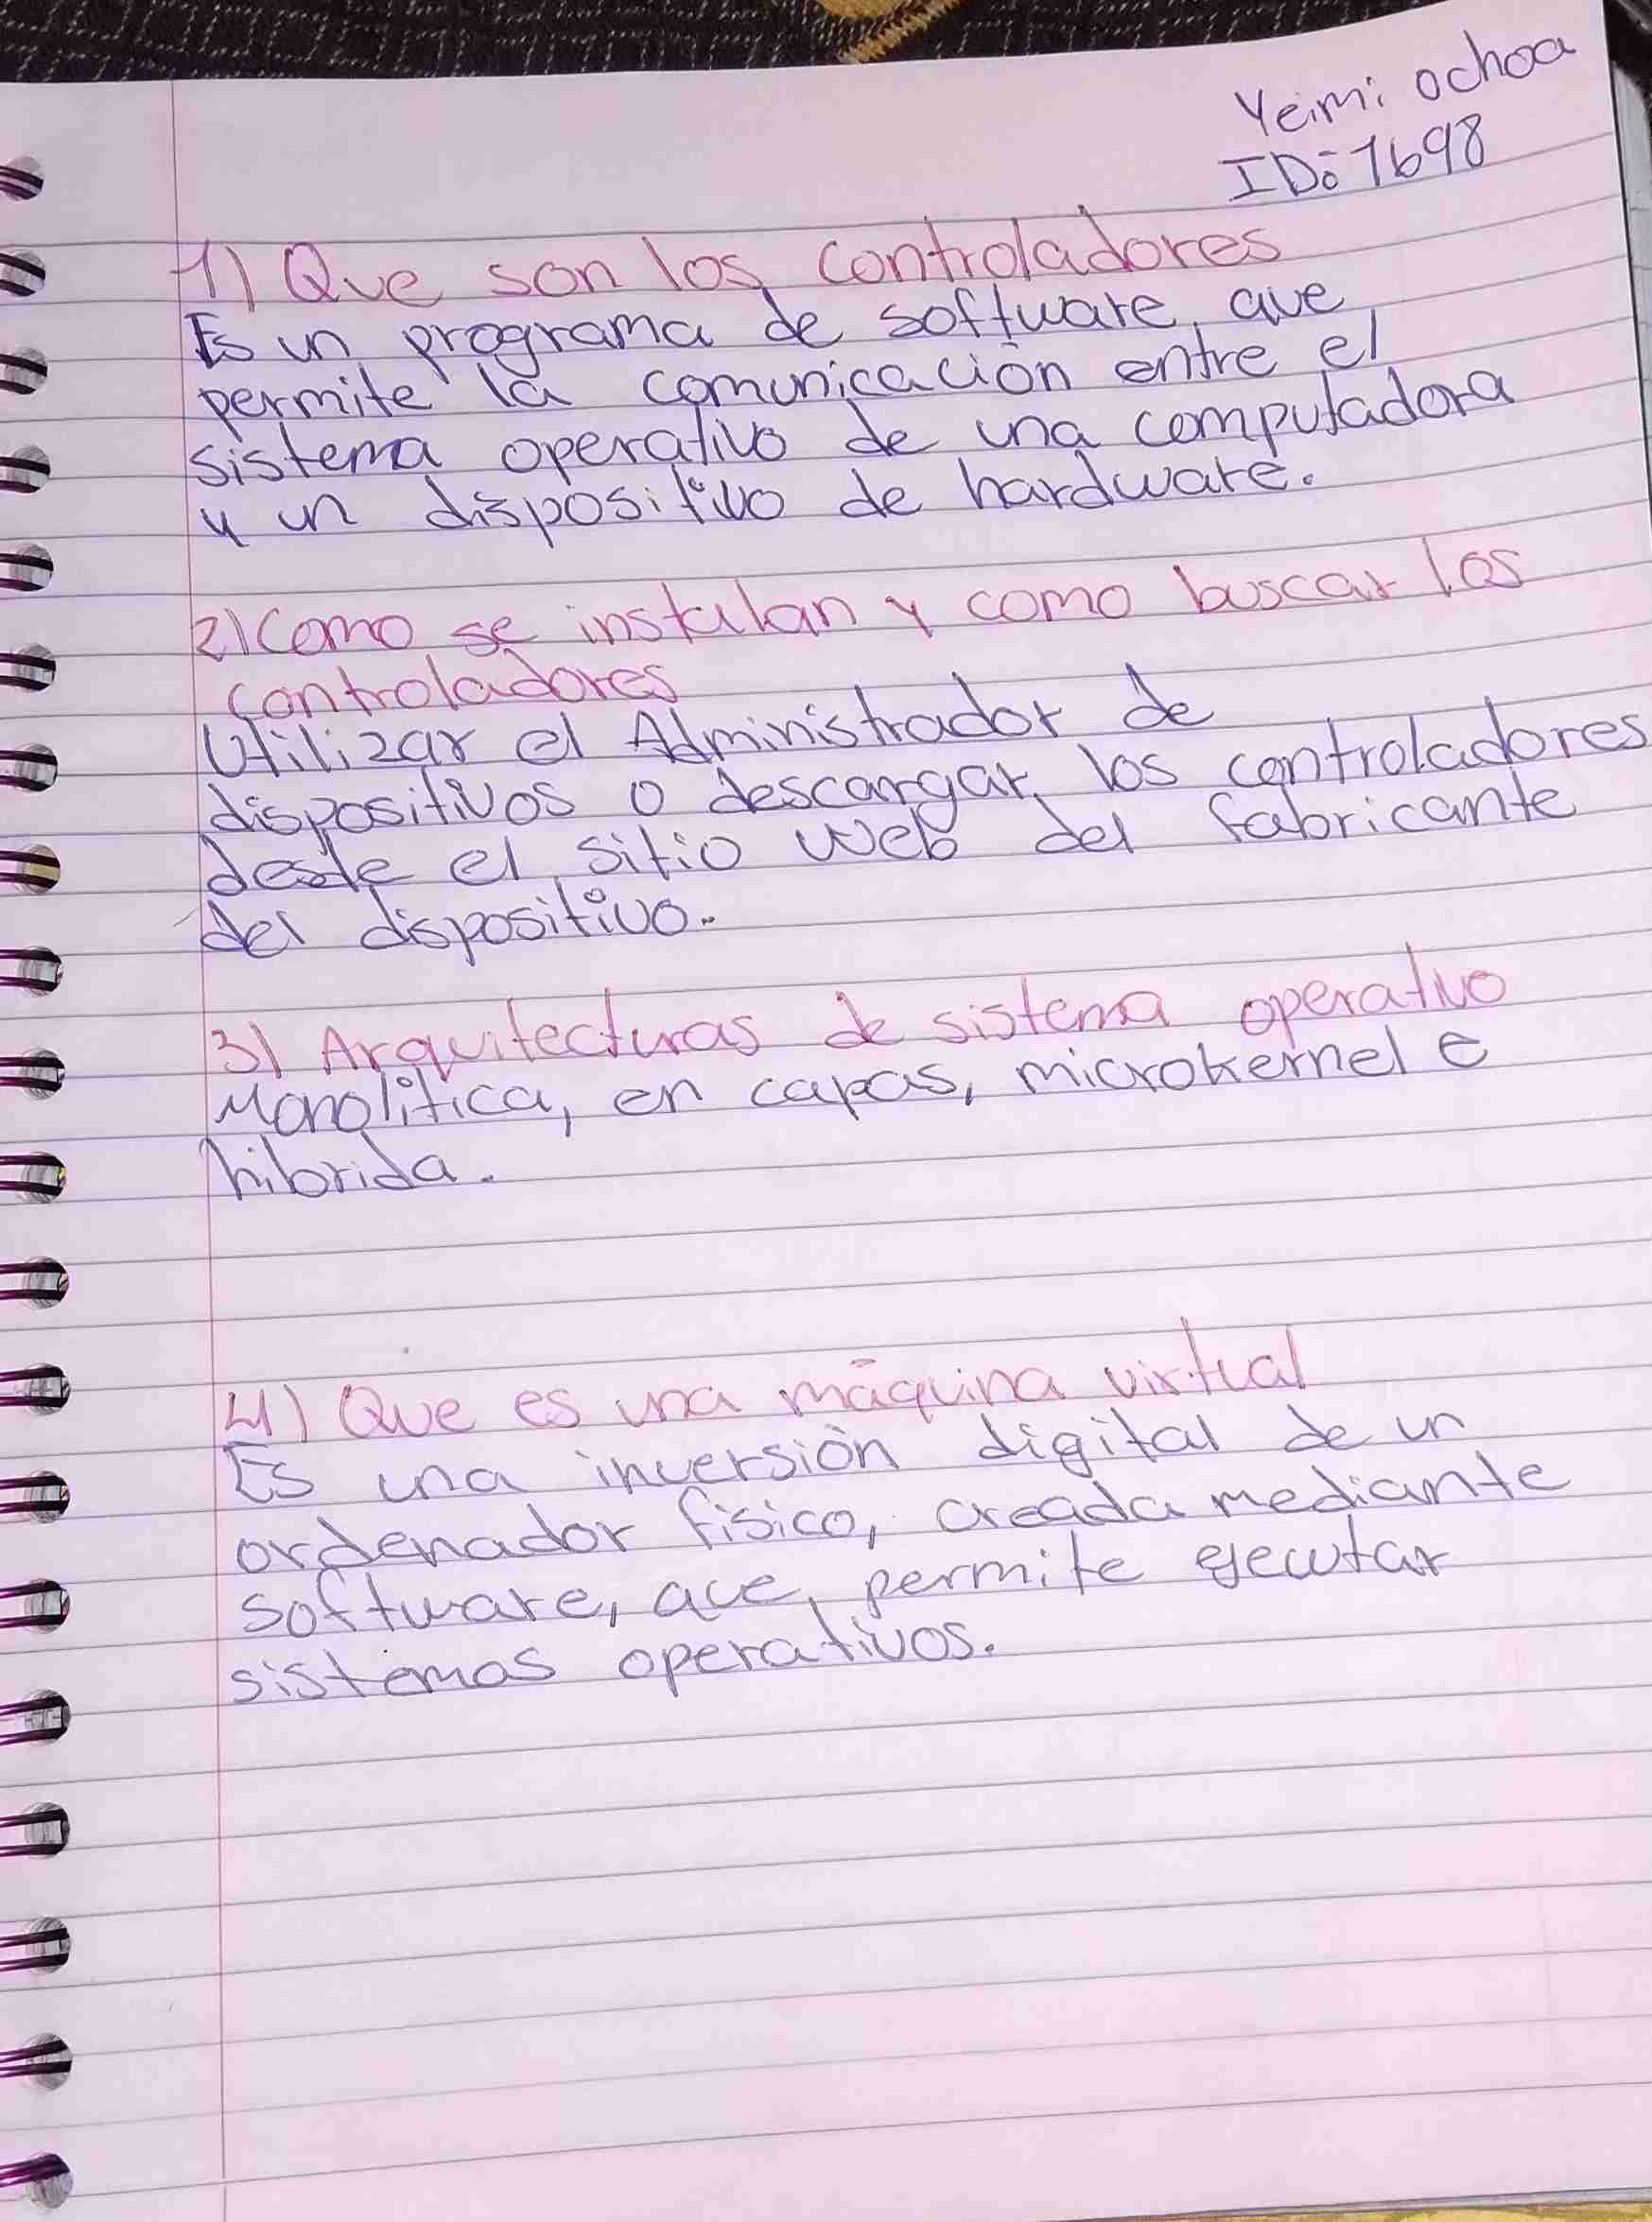 Yeimi ochoa
ID: 1698
1) Que son los controladores
Es un programa de software, que
permite la comunicación entre el
sistema operativo de una computadora
y un dispositivo de hardware.
2) Como se instalan y como buscar los
controladores
Utilizar el Administrador de
dispositivos o descargar los controladores
desde el sitio web del fabricante
del dispositivo.
3) Arquitecturas de sistema operativo
Monolítica, en capas, microkernel e
hibrida.
4) Que es una máquina virtual
Es una inversión digital de un
ordenador físico, creada mediante
software, que permite ejecutar
sistemas operativos.